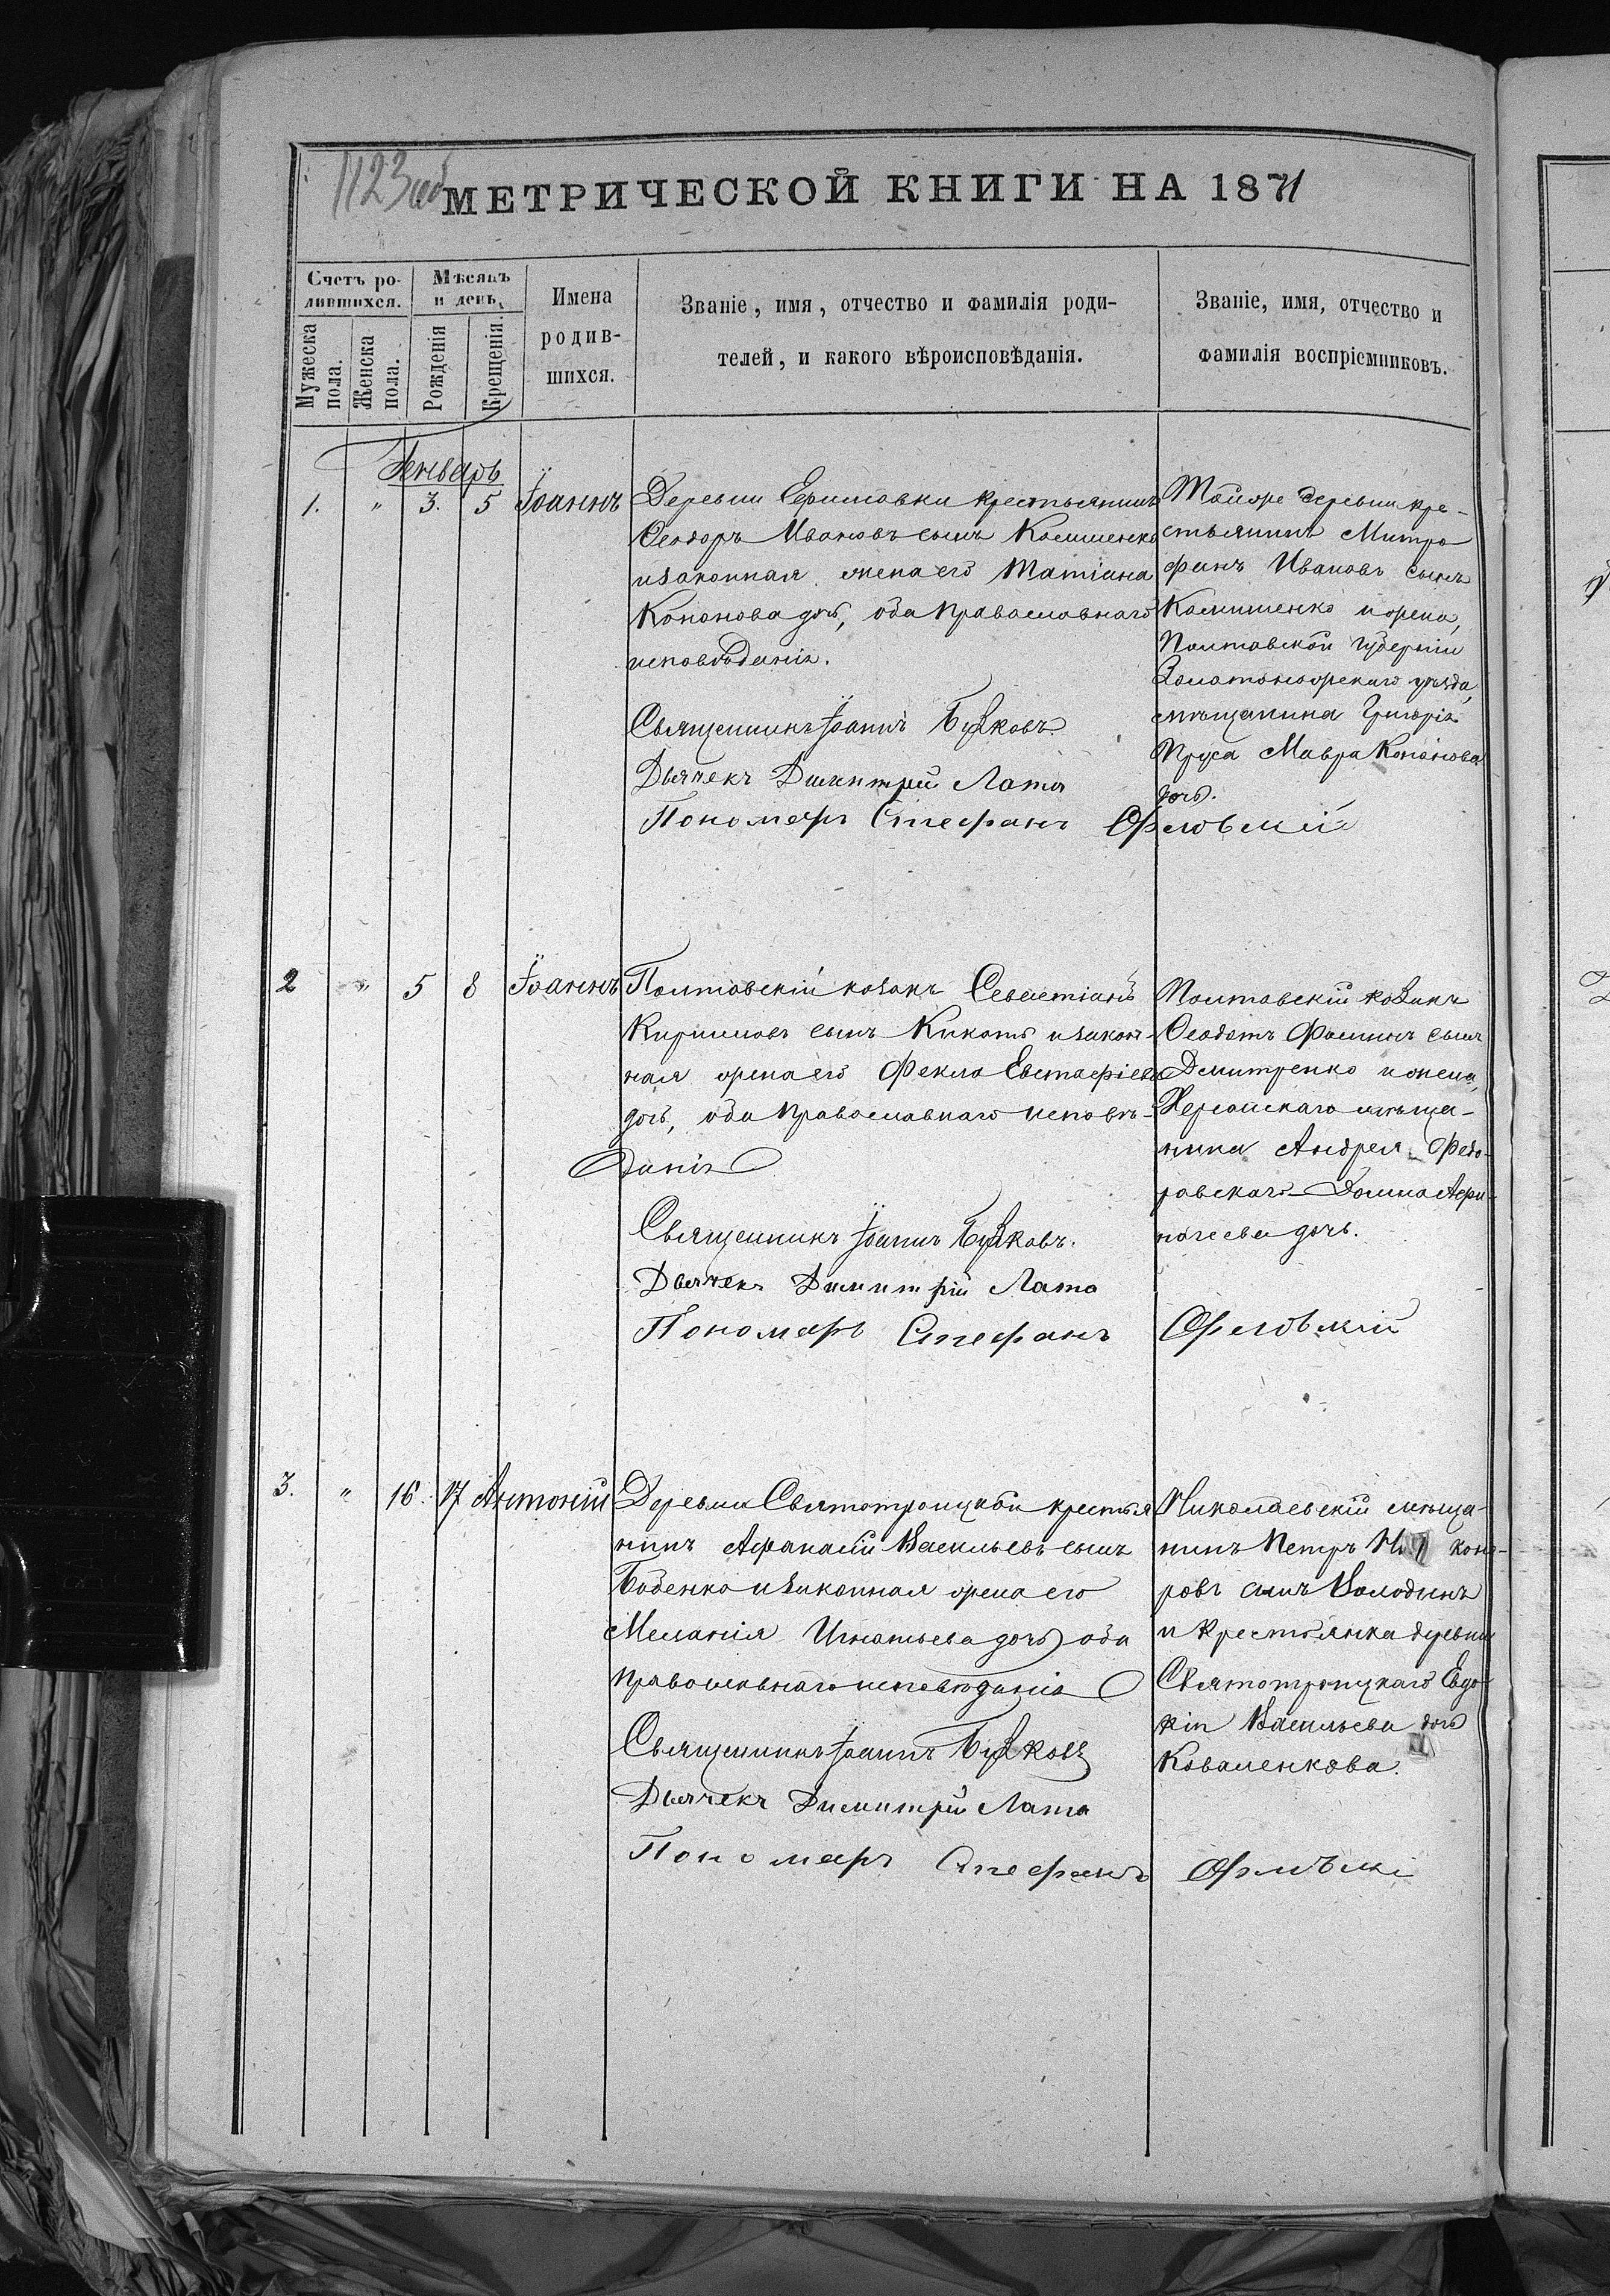 1123 об
МЕТРИЧЕСКОЙ КНИГИ НА 1871
Счетъ ро-
дившихся.
Мужеска пола.
Женска пола.
Мѣсяцъ
и день.
Рожденія
Крещенія.
Имена
родив-
шихся.
Званіе, имя, отчество и фамилія роди-
телей, и какого вѣроисповѣданія.
Званіе, имя, отчество и
фамилія воспріемниковъ.
Генварь
1. " 3. 5 Іоаннъ
Деревни Ермиловки крестьянинъ
Ѳеодоръ Ивановъ сынъ
и законная жена его Татіана
Кононова дочь, оба православнаго
исповѣданія.
Священникъ Іоаннъ
Дьячекъ Димитрій Лата
Пономарь Стефанъ Орловскій
Той же деревни кре-
стьянинъ Митро
фанъ Ивановъ сынъ
и жена,
Полтавской губерніи
Золотоношскаго уѣзда,
мѣщанина Григорія
Пруса Мавра Кононова
дочь.
2 " 5 8 Іоаннъ
Полтавскій козакъ Севастіанъ
Кирилловъ сынъ Кикоть и закон-
ная жена его Фекла Евстафіева
дочь, оба православнаго исповѣ-
данія
Священникъ Іоаннъ
Дьячекъ Димитрій Лата
Пономарь Стефанъ Орловскій
Полтавскій козакъ
Ѳеодотъ Фоминъ сынъ
Дмитренко и жена,
Херсонскаго мѣща-
нина Андрея Федо-
ровскаго Домна Афи-
ногеева дочь.
3. " 16. 17 Антоній
Деревни Святотроицкой крестья
нинъ Афанасій Васильевъ сынъ
Боденко и законная жена его
Меланія Игнатьева дочь оба
православнаго исповѣданія
Священникъ Іоаннъ
Дьячекъ Димитрій Лата
Пономарь Стефанъ Орловскі
Николаевскій мѣща-
нинъ Петръ
ровъ сынъ Володинъ
и крестьянка деревни
Святотроицкаго Евдо
кія Васильева дочь
Коваленкова.